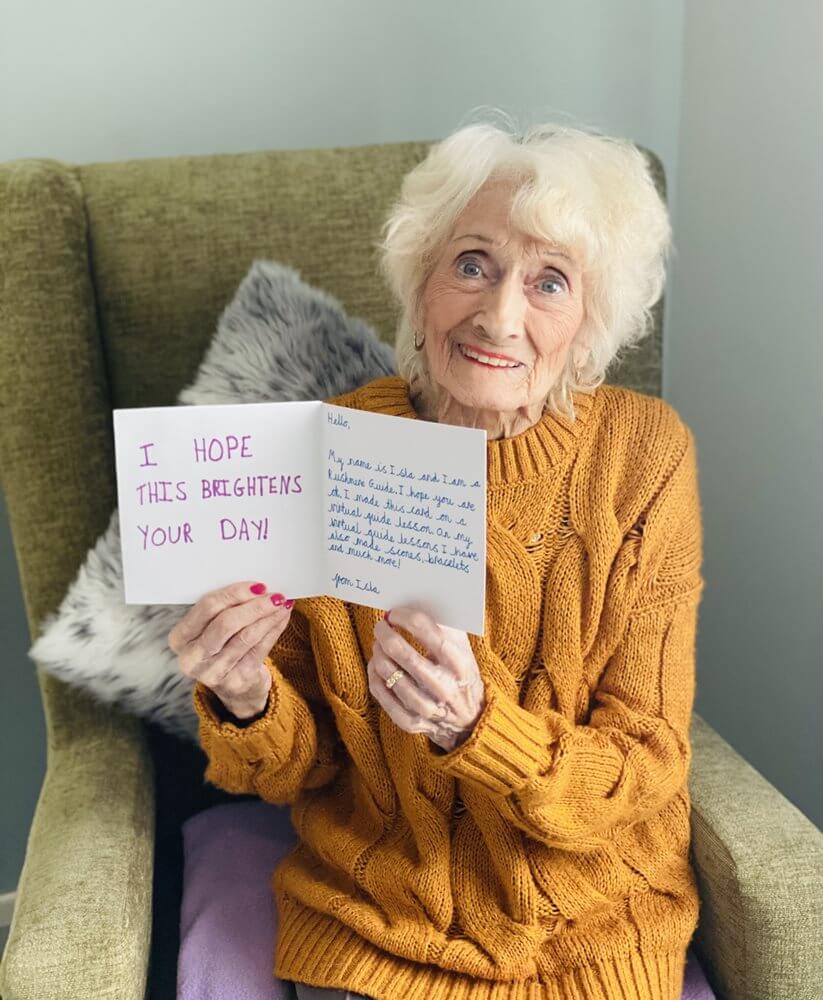 I HOPE
THIS BRIGHTENS
YOUR DAY!
Hello,
My name is Isla and I am a
Guide. I hope you are
ok. I made this card on a
virtual guide lesson. On my
virtual guide lessons I have
also made scones, bracelets
and much more!
from Isla